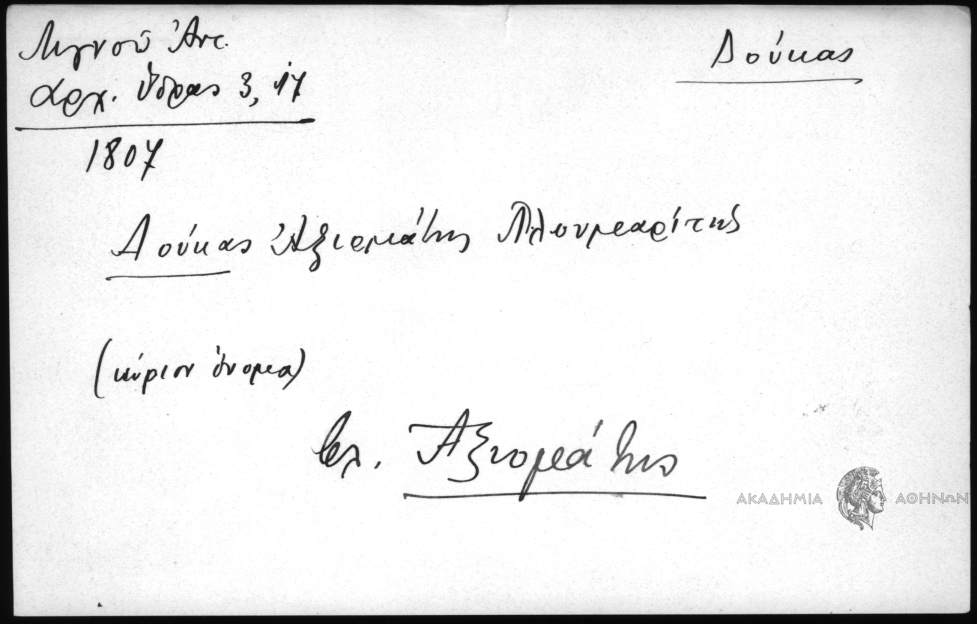 Λιγνοῦ Ἀντ.
Δούκας
Ἀρχ. Ὕδρας 3, 17
1807
Δούκας Ἀξιομάτης Πλουμαρίτης
(κύριον ὄνομα)
βλ. Ἀξιομάτης
ΑΚΑΔΗΜΙΑ ΑΘΗΝΩΝ